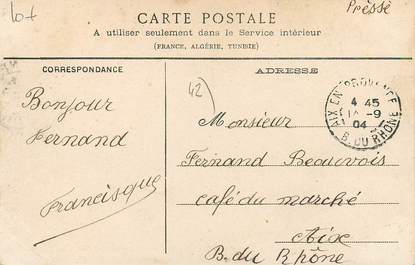 lot
Pressé
CARTE POSTALE
A utiliser seulement dans le Service intérieur
(FRANCE, ALGÉRIE, TUNISIE)
CORRESPONDANCE
ADRESSE
Bonjour
Fernand
Francisque
42
AIX EN PROVENCE
4 45
9
04
B. DU RHONE
Monsieur
Fernand Beauvois
café du marché
Aix
B. du Rhône